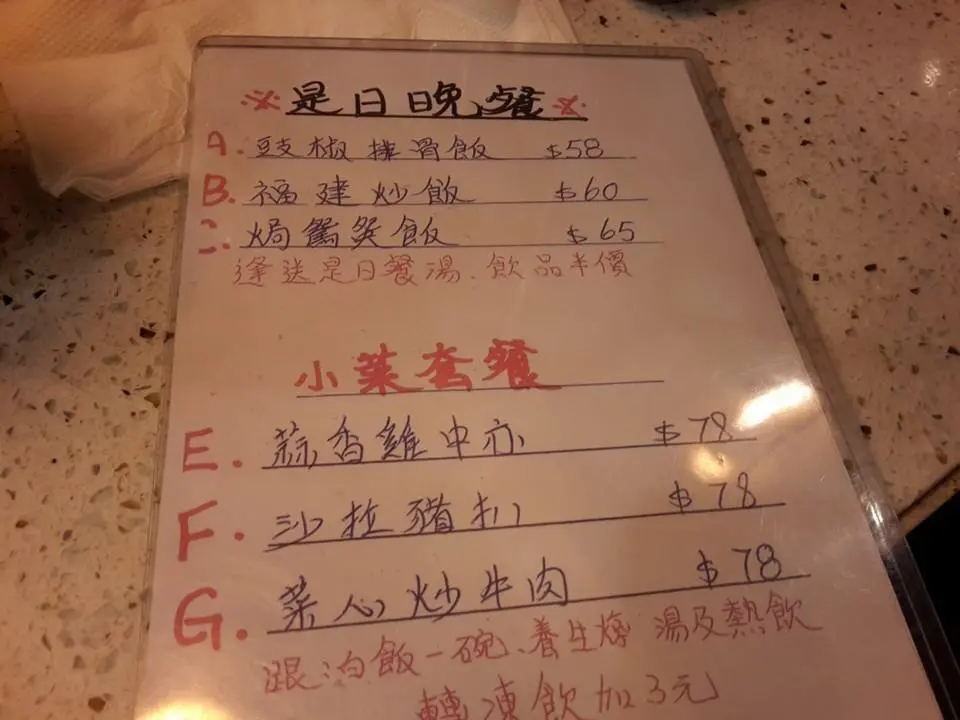 ※是日晚餐※
A. 豉椒排骨飯 $58
B. 福建炒飯 $60
焗鴛鴦飯 $65
逢送是日餐湯、飲品半價
小菜套餐
E. 蒜香雞中亦 $78
F. 沙拉豬扒 $78
G. 菜心炒牛肉 $78
跟:白飯一碗、養生燉湯及熱飲
轉凍飲加3元